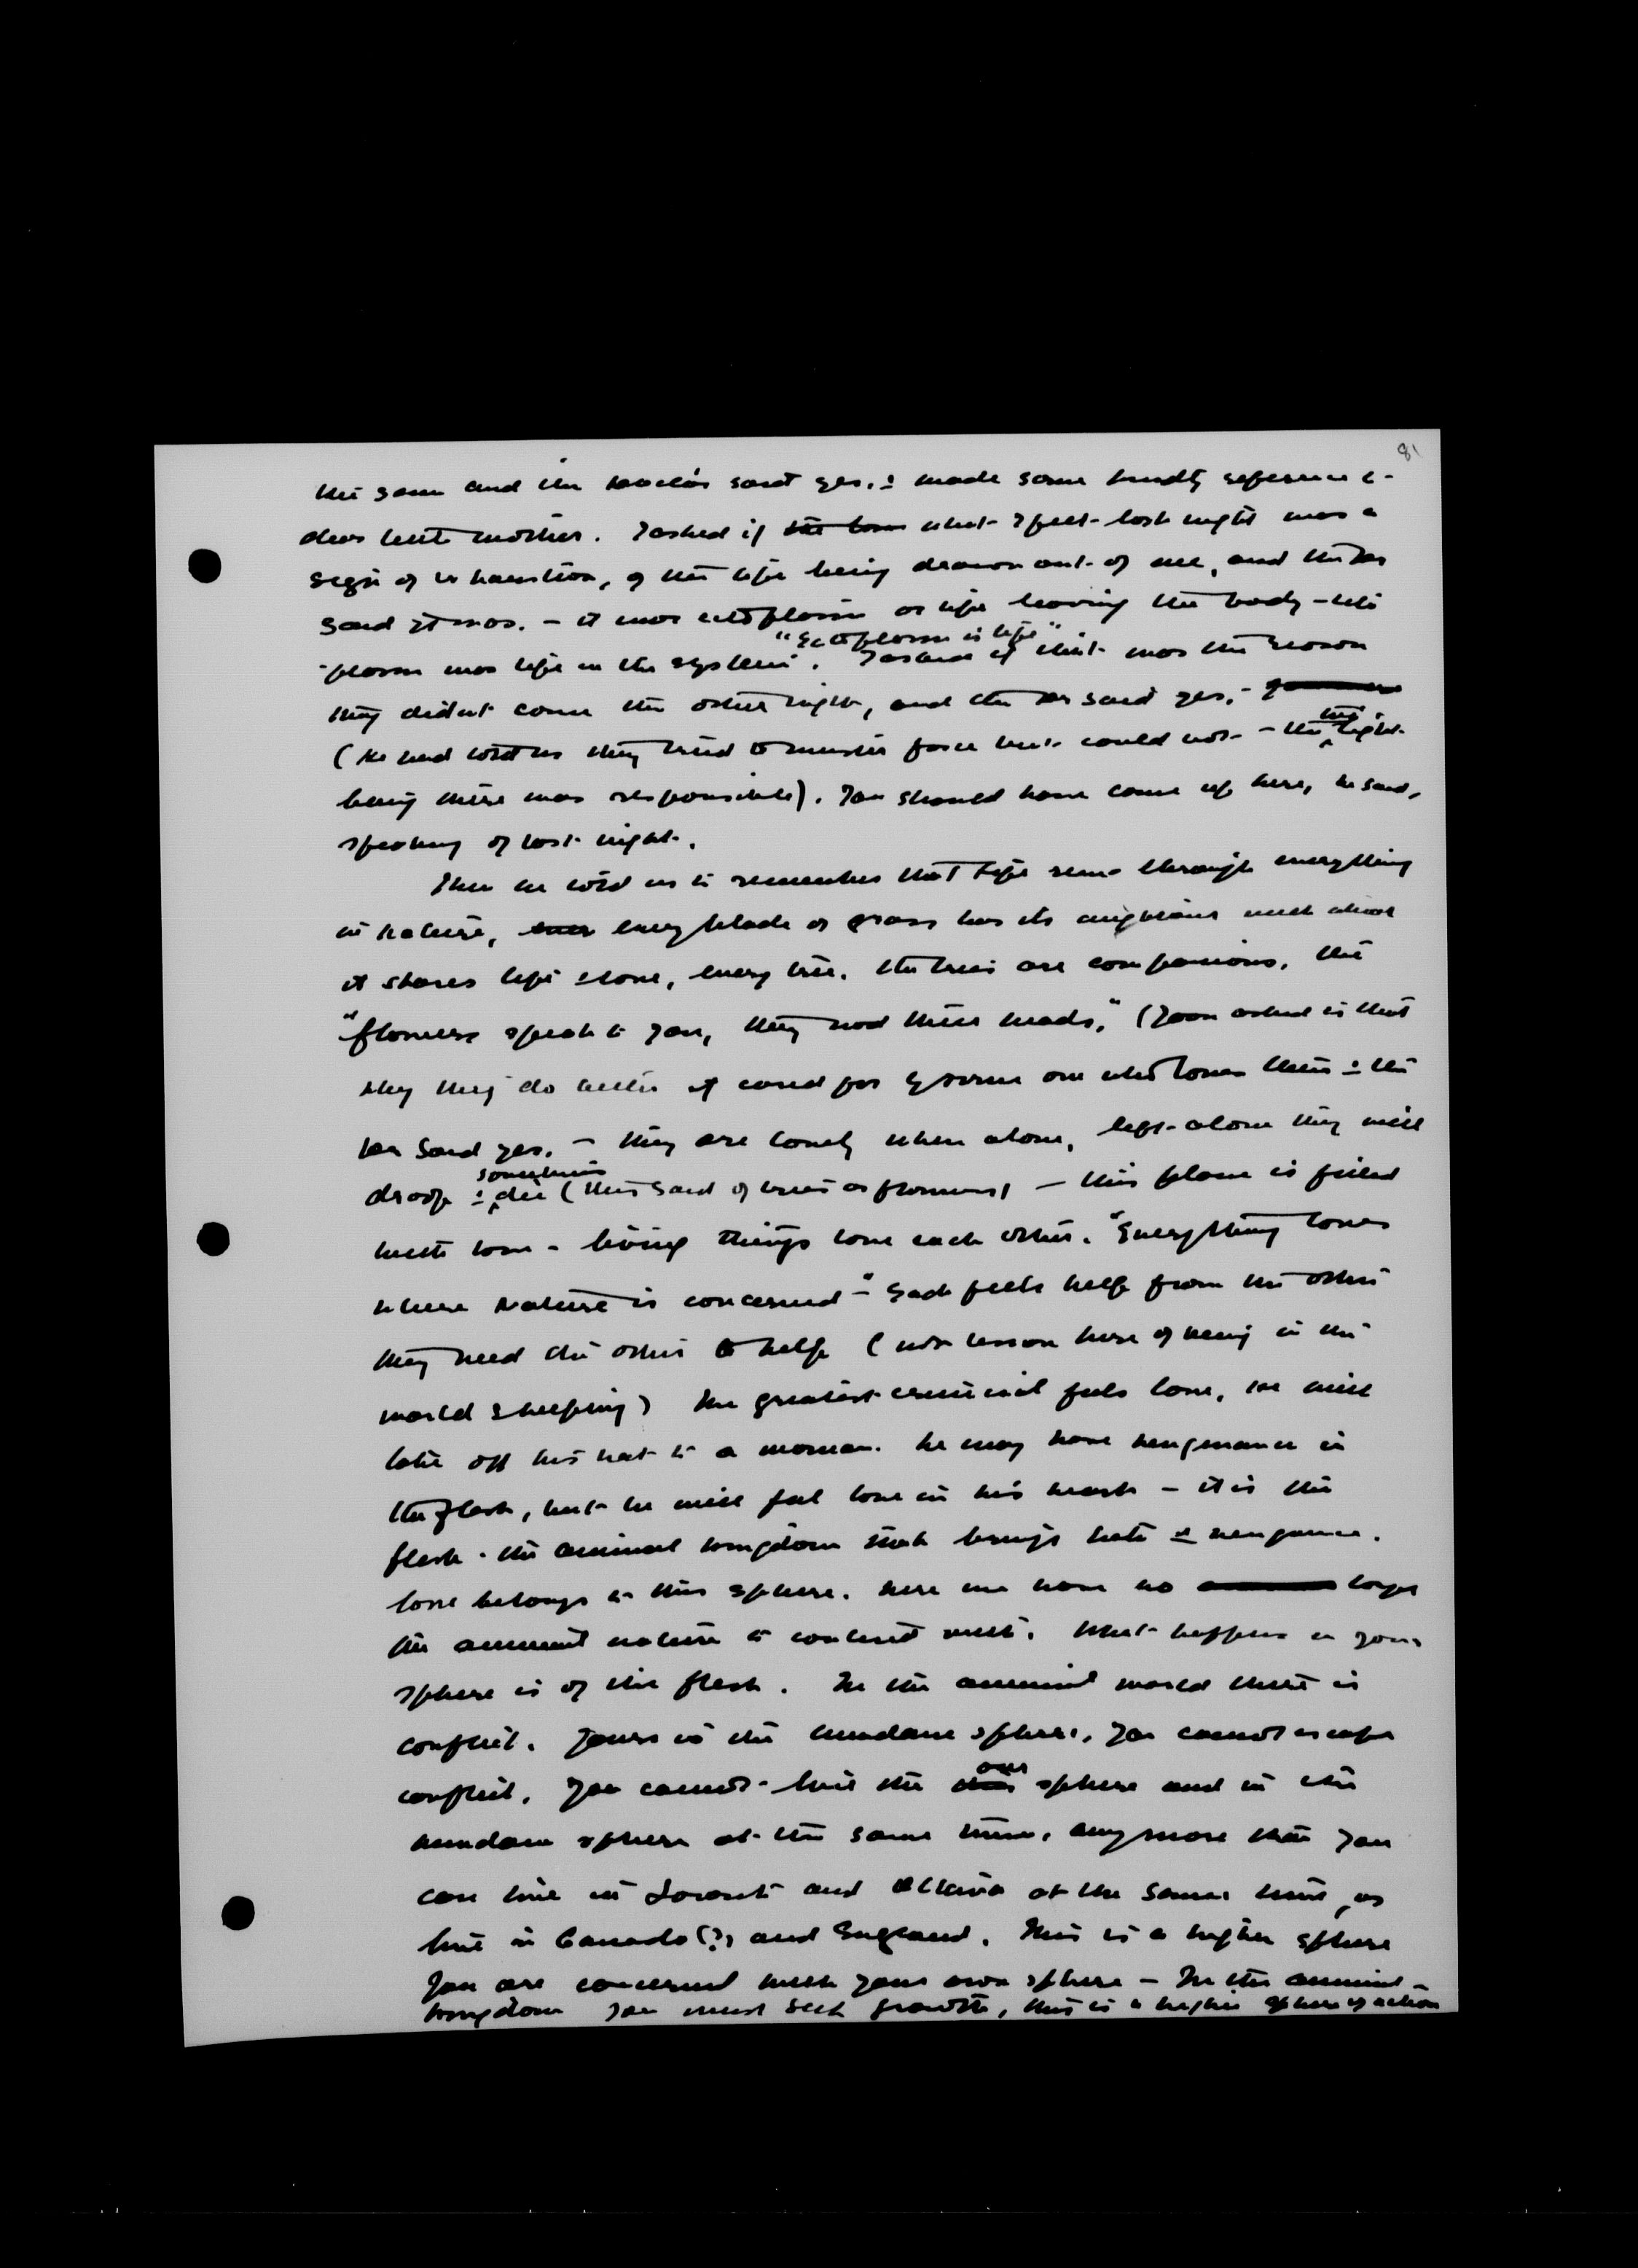 81
the same and the Doctor said yes, & made some kindly reference to
dear little mother. I asked if the lou what I felt last night was a
sign of exhaustion, of the life being drawn out of me, and the Dr
said it was. - it was ectoplasm or life leaving the body - ecto
"Ectoplasm is life"
-plasm was life in the system. I asked if that was the reason
they didn't come the other night, and the Dr said yes. -
the
(He had told us they tried to muster force but could not - the light
being there was responsible). You should have come up here, he said,
speaking of last night.
Then he told us to remember that life runs through everything
in Nature, ever every blade of grass has its neighbour with whom
it shares life & love, every tree. The trees are companions. The
"flowers speak to you, they nod their heads." (Joan asked is that
why they do better if cared for by some one who loves them & the
Dr said yes. - they are lonely when alone, left alone they will
sometimes
droop & die (this said of trees or flowers) - this plane is filled
with love - living things love each other. "Everything loves
where Nature is concerned - " Each feels help from the other
they need the other to help ( lesson here of being in the
world & helping) The greatest criminal feels love, he will
take off his hat to a woman. he may have vengeance in
the flesh, but he will feel love in his heart - it is the
flesh - the animal kingdom that brings hate & vengeance.
love belongs to this sphere. here we have no longer
the animal nature to contend with. What happens in your
sphere is of the flesh. In the animal world there is
conflict. Yours is the mundane sphere. You cannot escape
conflict. You cannot live the
our
sphere and in the
mundane sphere at the same time, any more than you
can live in Toronto and Ottawa at the same time, or
live in Canada (?) and England. This is a higher sphere
You are concerned with your own sphere - In the animal -
kingdom you must seek growth, this is a higher sphere of action